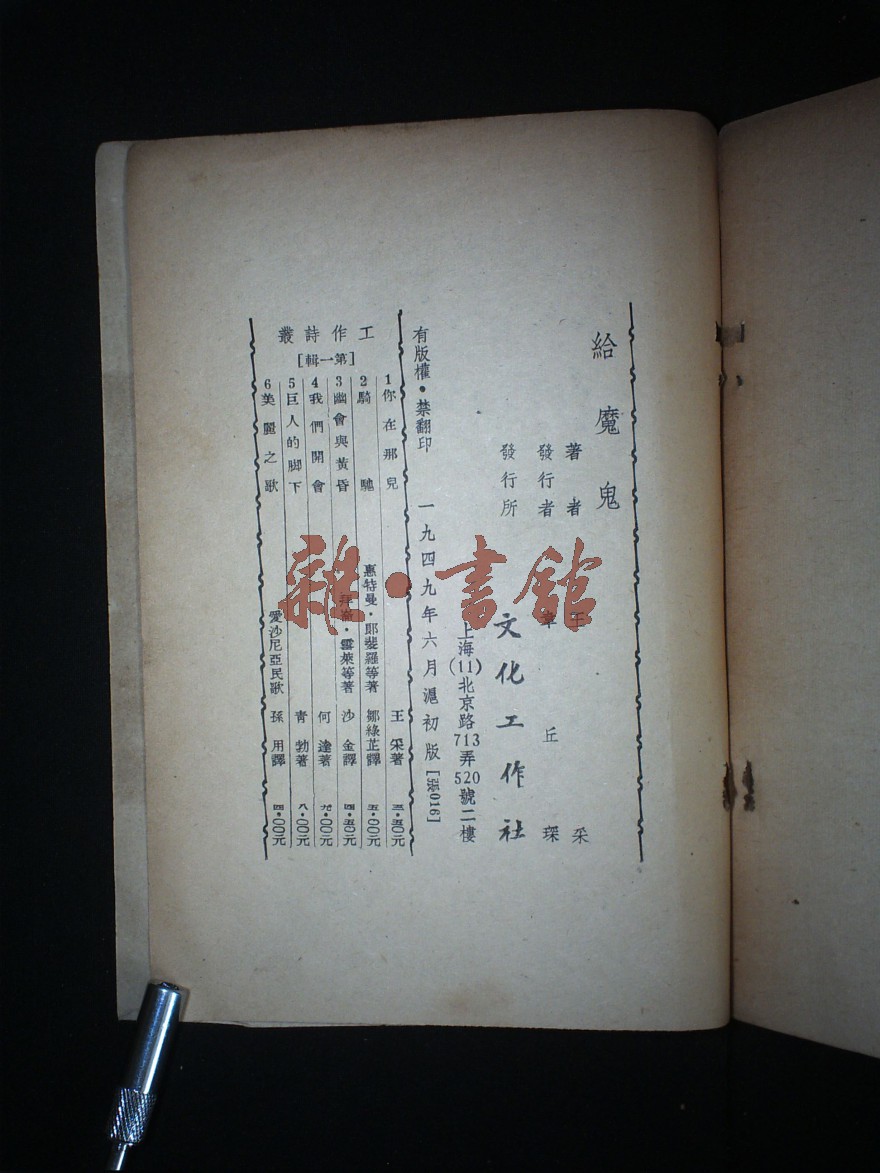 給魔鬼
著者 王采
發行者 韋丘琛
發行所 文化工作社
上海(11)北京路713弄520號二樓
有版權·禁翻印 一九四九年六月滬初版
工作詩叢
[第一輯]
1 你在那兒 王采著 三·五〇元
2 騎馳 惠特曼·即斐羅等著 鄒綠芷譯 五·〇〇元
3 幽會與黃昏 拜倫·雪萊等著 沙金譯 四·五〇元
4 我們開會 何達著 九·〇〇元
5 巨人的脚下 青勃著 八·〇〇元
6 美麗之歌 愛沙尼亞民歌 孫用譯 四·〇〇元
雜·書館